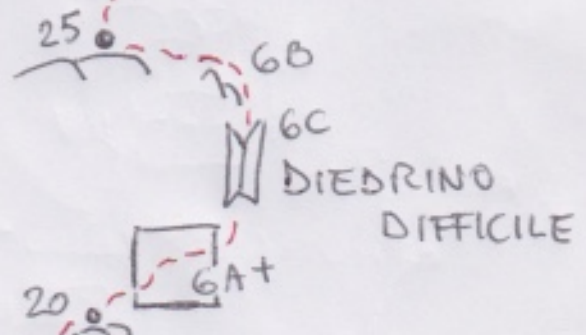 25
6B
6C
DIEDRINO
DIFFICILE
6A+
20